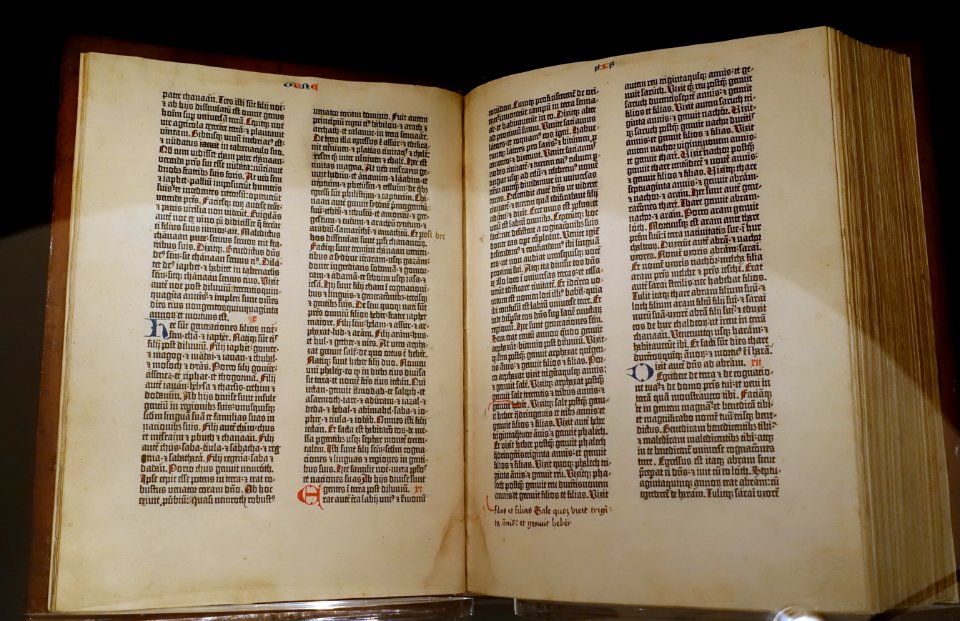 GENE
SIS
pater chanaan. Tres isti sūt filij noe:
et ab hijs disseminatū est omne genus
vir agricola exercere terrā: et plantauit
vineam. Bibensq; vinū inebriat⁹ est
et nudatus iacuit in tabernaculo suo.
duobus fratribs suis foris. At vero sem
et iaphet palliū imposuerunt humeris
patris virilia non viderūt. Euigilās
filius suus minor: ait. Maledictus
chanaan puer: seruus seruorū erit fra-
tribus suis. Dixitq;. Benedictus dn̄s
de⁹ sem: sit chanaan seruus ei⁹. Dila-
tet de⁹ iaphet: et habitet in tabernaclis
sem: sitq; chanaan seruus eius. Vixit
aūt noe post diluuiū trecentisquin-
quaginta annis: et impleti sunt oēs
dies eius nongentorumquinquaginta
annorū: et mortuus est. X
Hee sūt generationes filiorū noe:
sem cham et iaphet. Natiq; sūt eis
filij post diluuiū. Filij iaphet: gomer
et magog et madai et iauan et thubal
et mosoch et tyras. Porro filij gomer:
ascenez et riphat et thogorma. Filij
autē iauan: helysa et tharsis: cethim et
dodanim. Ab hijs diuise sunt insule
gentiū in regionibs suis: vnusquisq;
scd'm linguā suā et familias suas in
nationibs suis. Filij autē cham: chus
et mesraim et phuth et chanaan. Filij
autē chus: saba et euila et sabatha et reg-
ma et sabathaca. Filij regma: saba et
dadan. Porro chus genuit nemroth.
Ipse cepit esse potens in terra: et erat ro-
bustus venator coram dn̄o. Ab hoc
exiuit prouerbiū: quasi nemroth robust⁹
venator coram domino. Fuit autem
principiū regni ei⁹ babilon: et arach et
archath et calanne in terra sennaar.
De terra illa egressus ē assur: et edifica-
uit niniuen et plateas ciuitatis et chale:
resen q; inter niniuen et chale. Hec est
ciuitas magna. At vero mesraim ge-
nuit ludim et anamim et laabim et
neptuim et phetrusim et cesluim: de q̄bs
egressi sūt philistiim et capturim. Cha-
naan autē genuit sydonē primogenitū
suū: etheū et iebuseū et amorreū et ger-
geseū: eueū et aracheū et cyneū: et
aradiū samariten et amatheū. Et post hec
disseminati sunt populi chananeorū.
Factiq; sunt termini chanaan venien-
tibus a sydone geraram vsq; gazam:
donec ingrediaris sodomā et gomor-
ram et adamā et seboim vsq; lesa.
Hij sunt filij cham ī cognationi-
bus et linguis et generationibs terrisq;
et gentibs suis. De sem quoq; nati sūt
patre omniū filiorū heber: fratre iaphet
maiore. Filij sem: helam et assur et ar-
phaxat et lud et aram. Filij aram: hus
et hul et gether et mes. At vero arpha-
xat genuit sale: de quo ortus ē heber.
Natiq; sunt heber filij duo. Nomen
vni phalech: eo q; in dieb; eius diuisa
sit terra: et nomē fr̄is eius iectan. Qui
iectan: genuit elmodad et saleph et
asarmoth: iare et aduram et uzal et
decla et hebal et abimahel: saba et o-
phir et euila et iobab. Omnes isti filij
iectan. Et facta est habitatio eorū de mes-
sa pergentibs vsq; sephar montē orien-
talem. Isti sunt filij sem: scd'm cogna-
tiones et linguas et regiones in genti-
bus suis. Hee familie noe: iuxta ppl'os
et nationes suas. Ab hijs diuise sunt
gentes ī terra post diluuiū. XI
Erat autē terra labij vni⁹ et sermonū
eorundem. Cumq; proficiscerent de ori-
ente: inuenerūt campū in terra sennaar:
et habitauerunt in eo. Dixitq; alter
ad proximū suū. Venite faciam⁹
lateres: et coquamus eos igni. Habue-
runtq; lateres pro saxis: et bitumen pro
cemento: et dixerunt. Venite faciam⁹
nobis ciuitatē et turrem cui⁹ culmen p-
tingat ad celū: et celebrem⁹ nomen nrm
anteq̄ diuidamur in vniuersas
terras. Descendit autē dn̄s ut videret
ciuitatē et turrim quā edificabāt filij
adam: et dixit. Ecce vnus est populus: et
vnū labium omnibs. Ceperuntq; hoc
facere: nec desistent a cogitationibs suis:
donec eas opere cōpleant. Venite igit'
descendam⁹ et confundam⁹ ibi linguā
eorū: ut non audiat vnusquisq; vocē
proximi sui. Atq; ita diuisit eos dn̄s
ex illo loco in vniuersas terras: et cessa-
uerūt edificare ciuitatē. Et idcirco vo-
catū est nomen loci illi⁹ babel: quia
ibi confusū est labiū vniuerse terre. Et
inde dispersit eos dn̄s sup faciē cunctarū
regionū. Hee sunt generationes sem.
Sem erat centū annorū quādo genuit
arphaxat: biennio post diluuiū. Vixit-
q; sem postq̄ genuit arphaxat quingen-
tis annis: et genuit filios et filias. Por-
ro arphaxat vixit trigintaquinq; annis:
et genuit sale. Vixitq; arphaxat postq̄
genuit sale trecentis et tribus annis: et
genuit heber. Vixitq; sale postq̄ genu-
it heber quadringentis et tribs annis: et
genuit filios et filias. Vixit autē heber
trigintaquatuor annis: et genuit phalech.
Et vixit heber postq̄ genuit phalech
quadringentis triginta annis: et genuit
filios et filias. Vixit quoq; phalech tri-
ginta annis: et genuit reu. Vixitq; pha-
lech postq̄ genuit reu ducentisnouem
annis: et genuit filios et filias. Vixit
filias et filias Sale quoq; vixit trigin-
ta ānis: et genuit heber
autem reu trigintaduob; annis: et ge-
nuit saruch. Vixit q; reu postq̄ genuit
saruch ducentisseptē annis: et genuit
filios et filias. Vixit autem saruch tri-
ginta annis: et genuit nachor. Vixitq;
saruch postq̄ genuit nachor ducentis
annis: et genuit filios et filias. Vixit
autem nachor vigintinouem annis:
et genuit thare. Vixitq; nachor postq̄
genuit thare centū et nouē annis:
et genuit filios et filias. Vixitq; thare
septuaginta annis: et genuit abram
et nachor et aram. Hee sunt autē gene-
rationes thare. Thare genuit abram:
nachor et aram. Porro aram genuit
loth. Mortuusq; est aram ante thare
patrē suū: in terra natiuitatis sue ī hur
chaldeorū. Duxerūt autē abram et nachor
vxores. Nomē vxoris abram: sarai.
Et nomē vxoris nachor: melcha filia
aram: patris melche et patris iesche. Erat
autē sarai sterilis: nec habebat liberos.
Tulit itaq; thare abram filium suū: et
loth filium aram filiū filij sui: et sarai
nurum suā vxorē abrā filij sui: et eduxit
eos de hur chaldeorū: ut irent in terrā
chanaan. Veneruntq; vsq; haram: et
habitauerūt ibi. Et facti sūt dies thare
ducentorūquinq; annorū: et mortu⁹ ē ī harā.
Dixit autē dn̄s ad abram. XII
Egredere de terra et de cognatio-
ne tua et de domo patris tui: et veni in
terrā quā monstrauero tibi. Faciam-
q; te in gentem magnā: et benedicā tibi:
et magnificabo nomē tuū: erisq; bene-
dictus. Benedicam benedicentibs tibi:
et maledicam maledicentibs tibi: atq;
in te benedicent vniuerse cognationes
terre. Egressus est itaq; abram sicut
preceperat ei dn̄s: et iuit cū eo loth. Septu-
agintaquinq; annorū erat abram: cū
egrederet' de haram. Tulitq; sarai vxorē